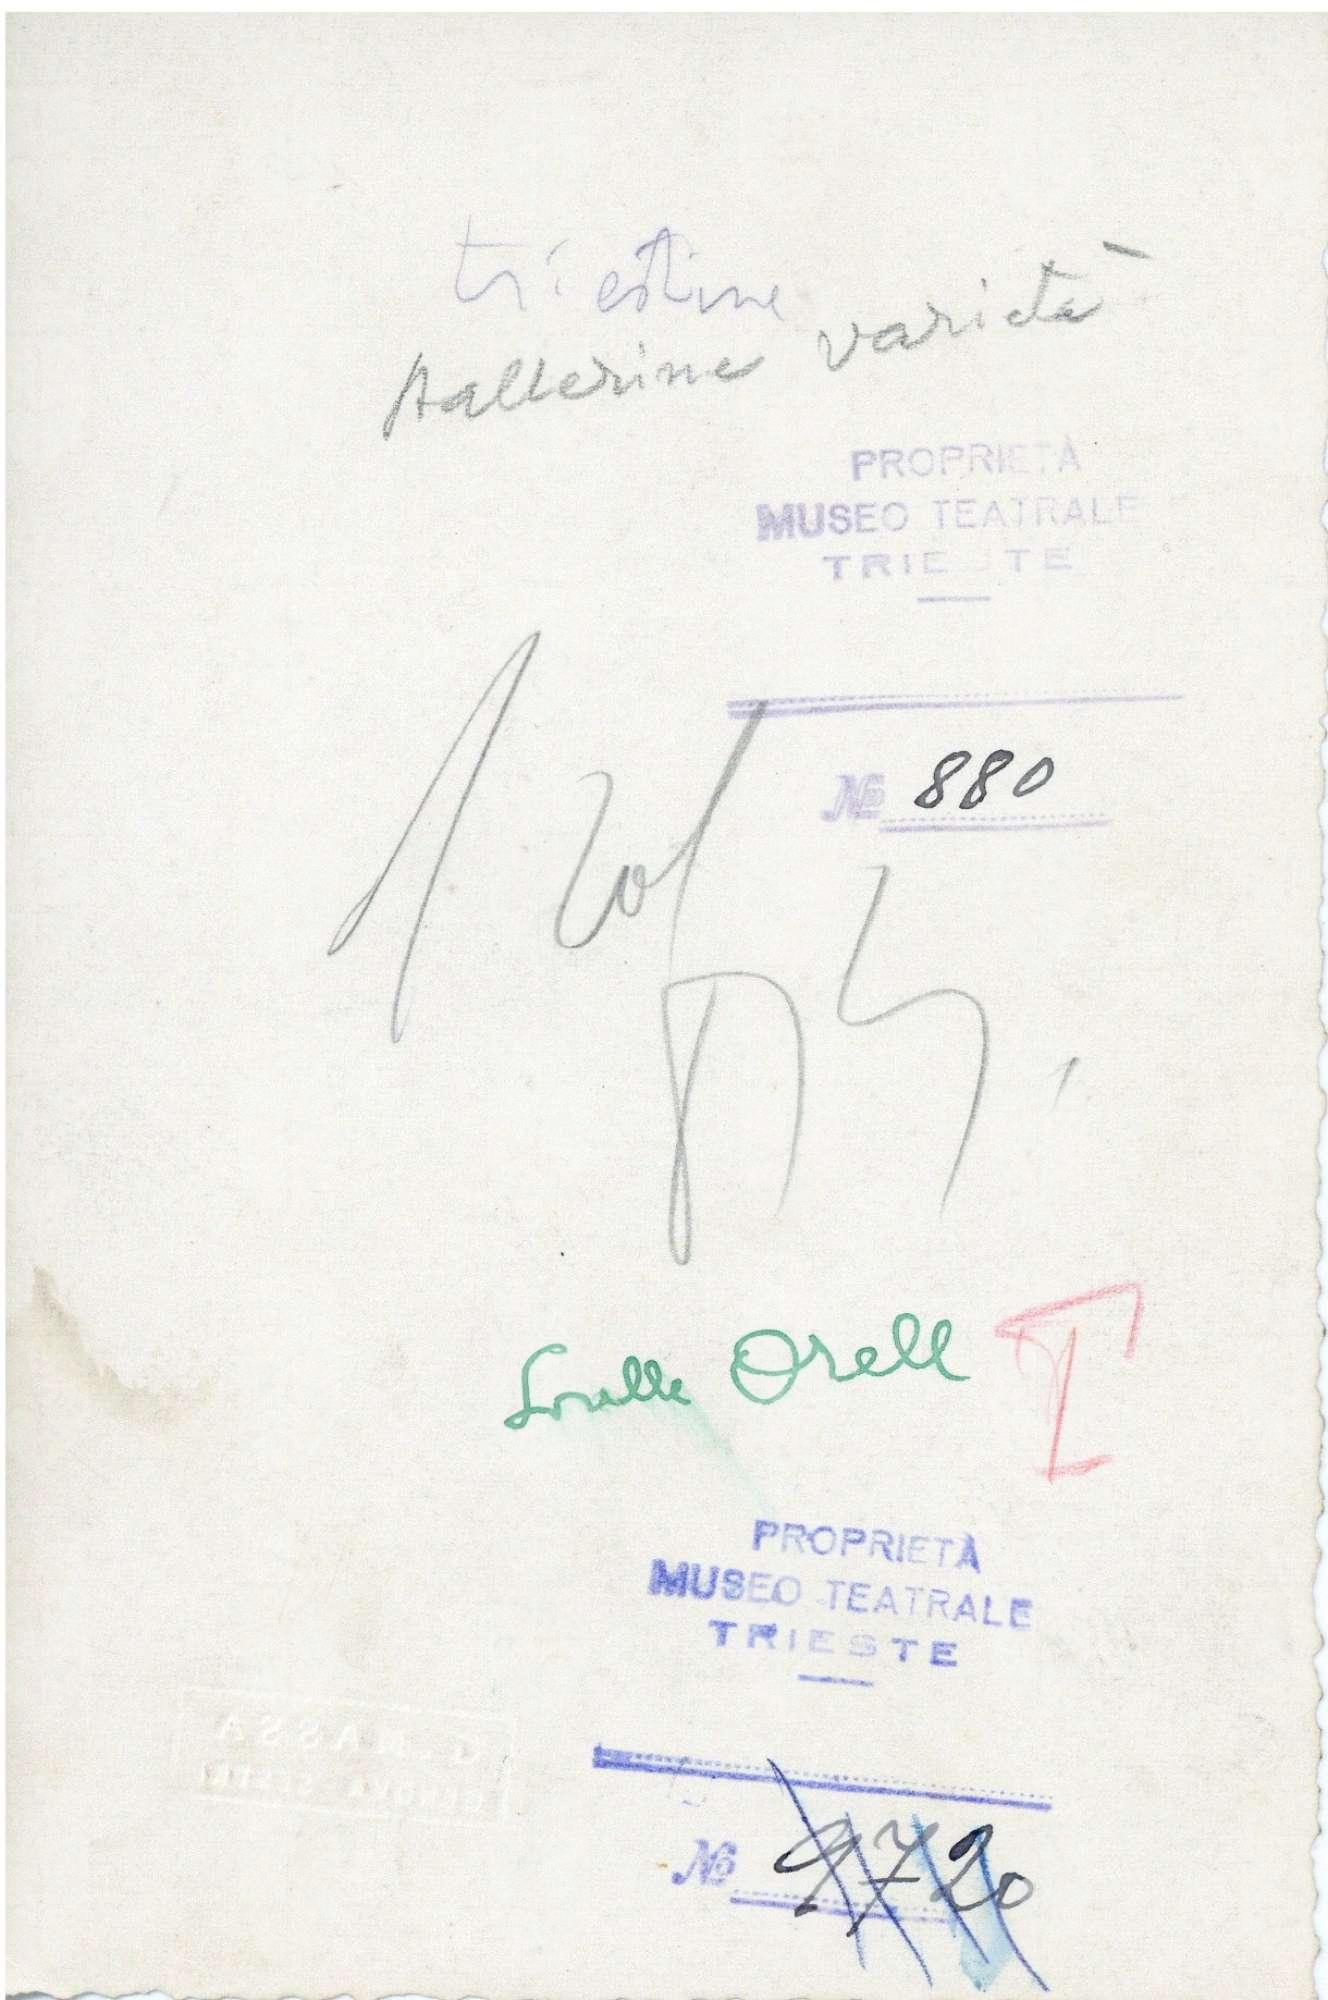 triestine
ballerine varietà
PROPRIETÀ
MUSEO TEATRALE
TRIESTE
№ 880
Sorelle Orell I
PROPRIETÀ
MUSEO TEATRALE
TRIESTE
№ 9720